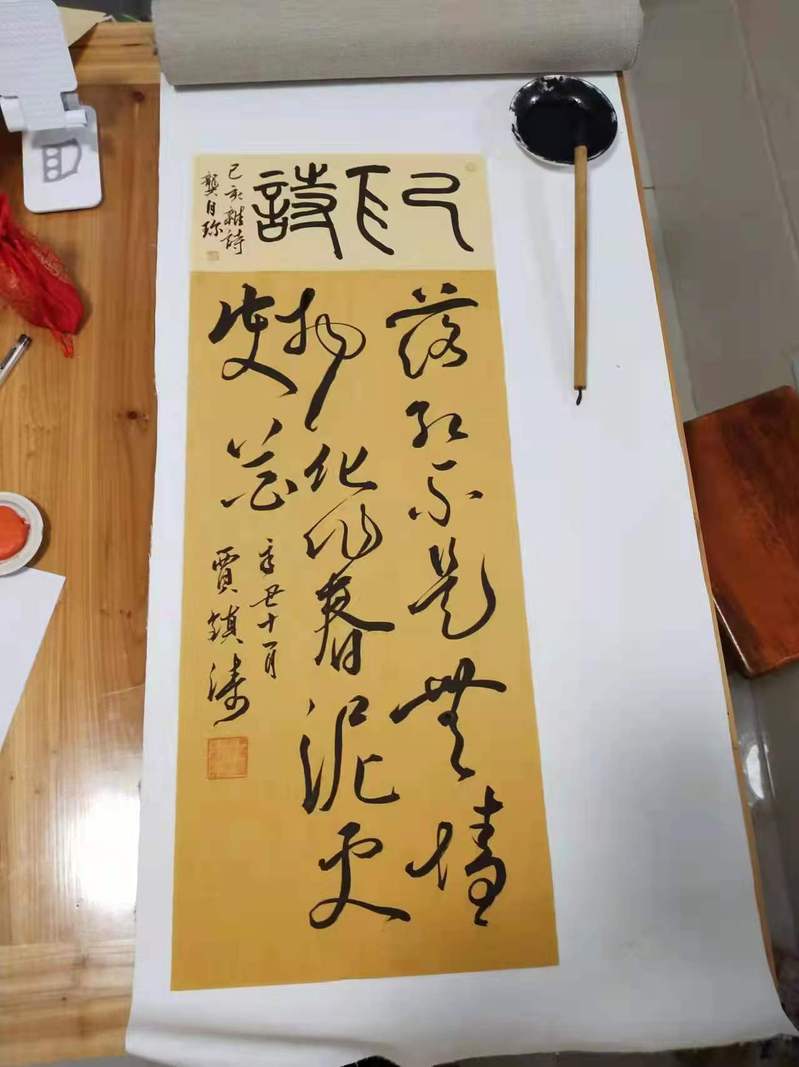 己亥詩
己亥雜詩
龔自珍
落紅不是無情
物化作春泥更
護花
辛丑十一月
賈鎮濤